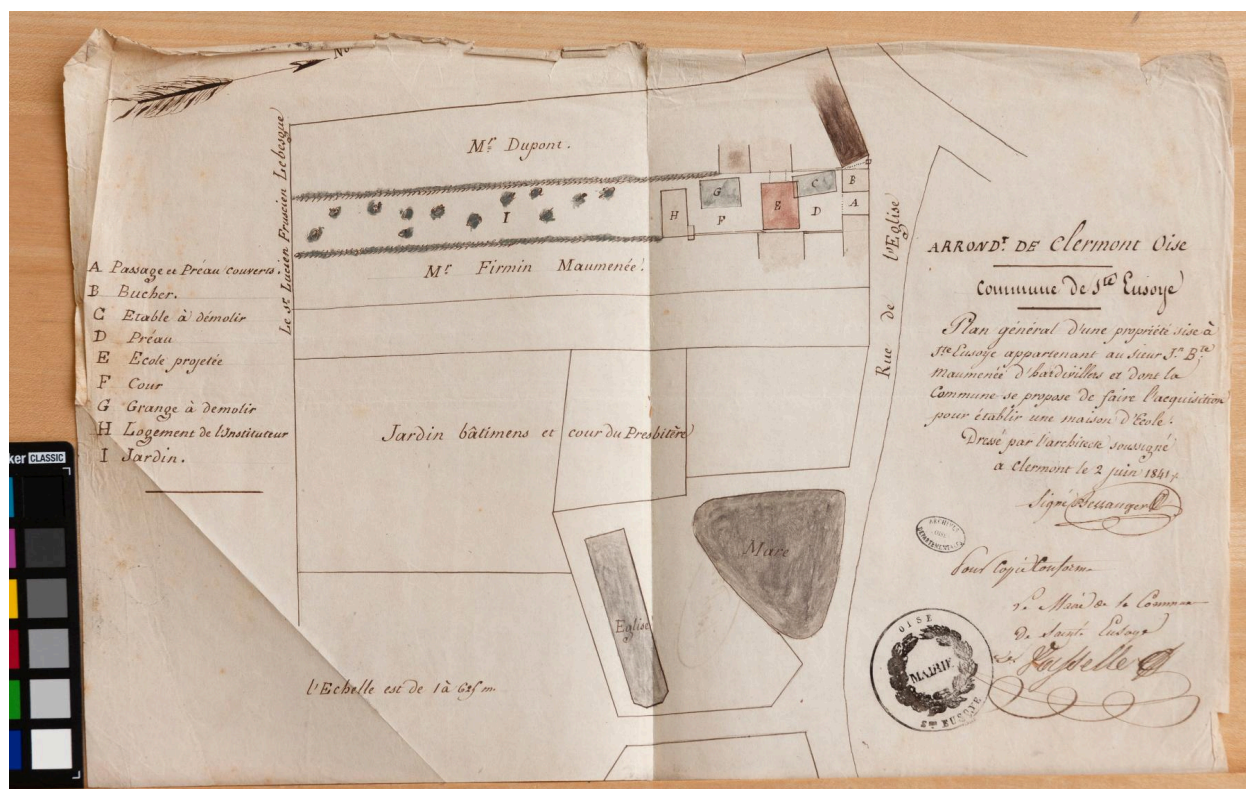 No
Mr Dupont.
Le Sr Lucien Fruscien Lebesque
G
C
B
H
F
E
D
A
I
Mr Firmin Maumenée.
Rue de l'Eglise
A Passage et Préau couverts.
B Bucher.
C Etable à démolir
D Préau
E Ecole projetée
F Cour
G Grange à demolir
H Logement de l'Instituteur
I Jardin.
Jardin bâtimens et cour du Presbitère
Mare
Eglise
l'Echelle est de 1 à
ARRONDt. DE Clermont Oise
Commune de Ste Eusoye
Plan général d'une propriété sise à
Ste Eusoye appartenant au sieur Jn. Bte.
Maumenée d'hardivillers et dont la
Commune se propose de faire l'acquisition
pour établir une maison d'Ecole.
Dressé par l'architecte soussigné
a Clermont le 2 juin 1841.
Signé
ARCHIVES
DÉPARTEMENTALES
Pour Copie Conforme
Le Maire de la Commune
De Sainte Eusoye
OISE
MAIRIE
STE EUSOYE
ker CLASSIC